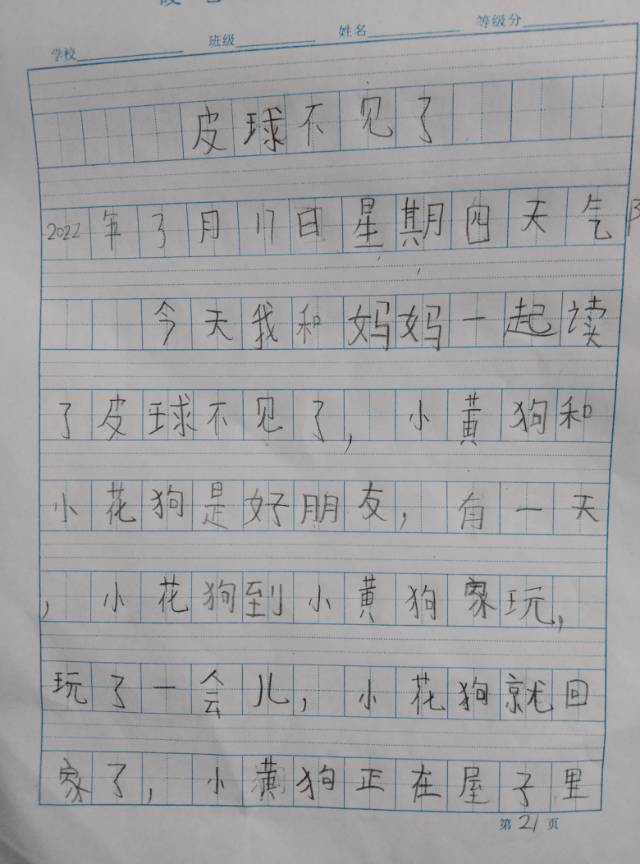 学校 班级 姓名 等级分
皮球不见了
2022年3月17日星期四天气
今天我和妈妈一起读
了皮球不见了，小黄狗和
小花狗是好朋友，有一天
，小花狗到小黄狗家玩，
玩了一会儿，小花狗就回
家了，小黄狗正在屋子里
第21页